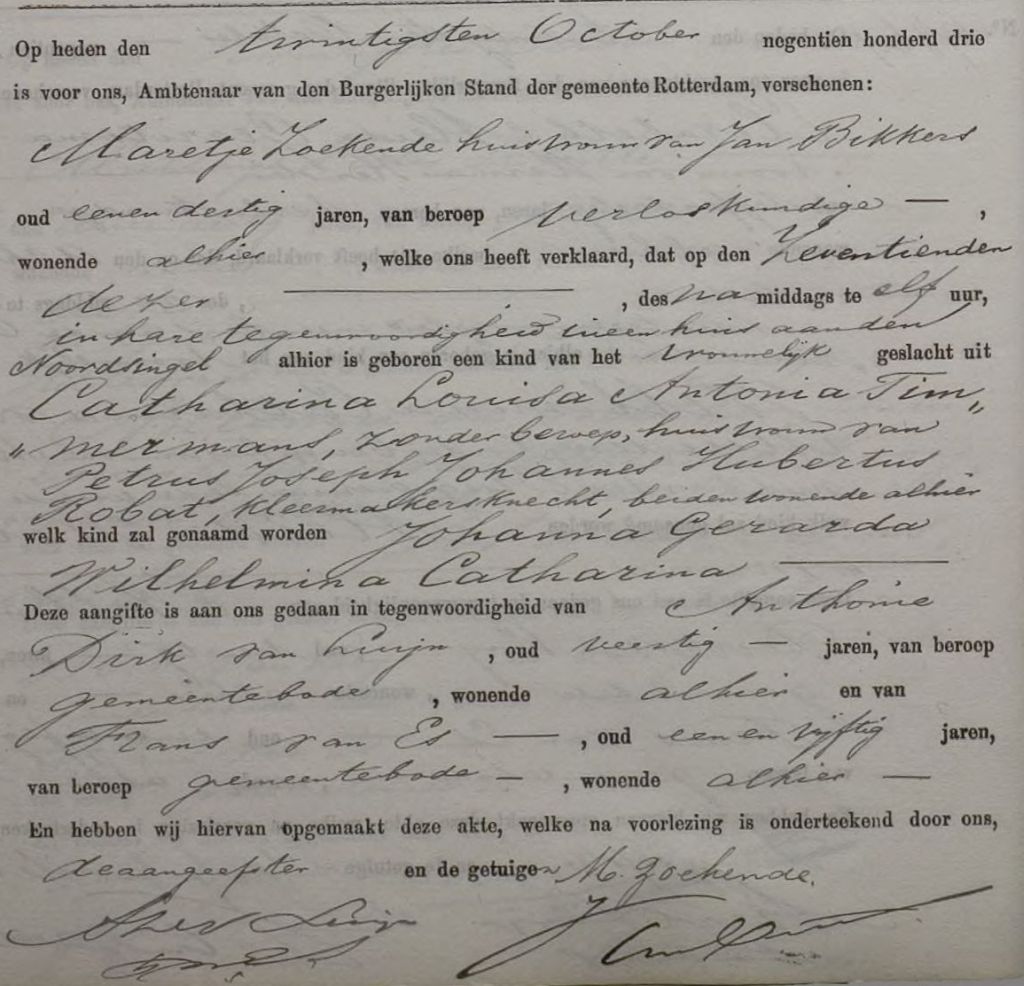 Op heden den twintigsten October negentien honderd drie
is voor ons, Ambtenaar van den Burgerlijken Stand der gemeente Rotterdam, verschenen:
Maretje Zoekende huisvrouw van Jan Bikkers
oud eenendertig jaren, van beroep verloskundige — ,
wonende alhier , welke ons heeft verklaard, dat op den Zeventienden
dezer ——— , des namiddags te elf uur,
in hare tegenwoordigheid in een huis aan den
Noordsingel alhier is geboren een kind van het vrouwelijk geslacht uit
Catharina Louisa Antonia Tim„
„mermans, zonder beroep, huisvrouw van
Petrus Joseph Johannes Hubertus
Robat, kleermakersknecht, beiden wonende alhier
welk kind zal genaamd worden Johanna Gerarda
Wilhelmina Catharina ———
Deze aangifte is aan ons gedaan in tegenwoordigheid van Anthonie
Dirk van Luijn , oud veertig — jaren, van beroep
gemeentebode , wonende alhier en van
Frans van Es — , oud een en vijftig jaren,
van beroep gemeentebode — , wonende alhier —
En hebben wij hiervan opgemaakt deze akte, welke na voorlezing is onderteekend door ons,
de aangeefster en de getuigen M. Zoekende.